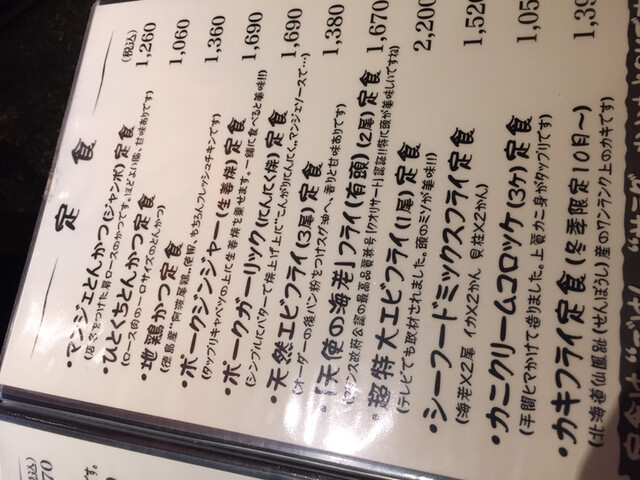 定食
(税込)
・マンジェとんかつ(ジャンボ)定食 1,260
(店名をつけた肩ロースのかつです。ほどよい脂、甘味ありです)
・ひとくちとんかつ定食 1,060
(ロース肉の一口サイズのとんかつ)
・地鶏かつ定食 1,360
(徳島産“阿波尾鶏”使用、もちろんフレッシュチキンです)
・ポークジンジャー(生姜焼)定食 1,690
(タップリキャベツの上に生姜焼を乗せます。一緒に食べると美味!!)
・ポークガーリック(にんにく焼)定食 1,690
(シンプルにバターで焼上げ上に“こんがりにんにく。マンジェソースで…)
・天然エビフライ(3尾)定食 1,380
(オーダーの後パン粉をつけスグ油へ、香りと甘味ありです)
・「天使の海老」フライ(有頭)(2尾)定食 1,670
(フランス政府公認の最高品質称号「クオリサート」認証!!特に頭が美味しいですね)
・超特大エビフライ(1尾)定食 2,200
(テレビでも取材されました。頭のミソが美味!!)
・シーフードミックスフライ定食 1,520
(海老×2尾 イカ×2かん 貝柱×2かん)
・カニクリームコロッケ(3ケ)定食 1,05
(手間ヒマかけて造りました。上質カニ身がタップリです)
・カキフライ定食(冬季限定10月〜) 1,39
(北海道仙鳳趾(せんぽうし)産のワンランク上のカキです)
(税込)
70
す。